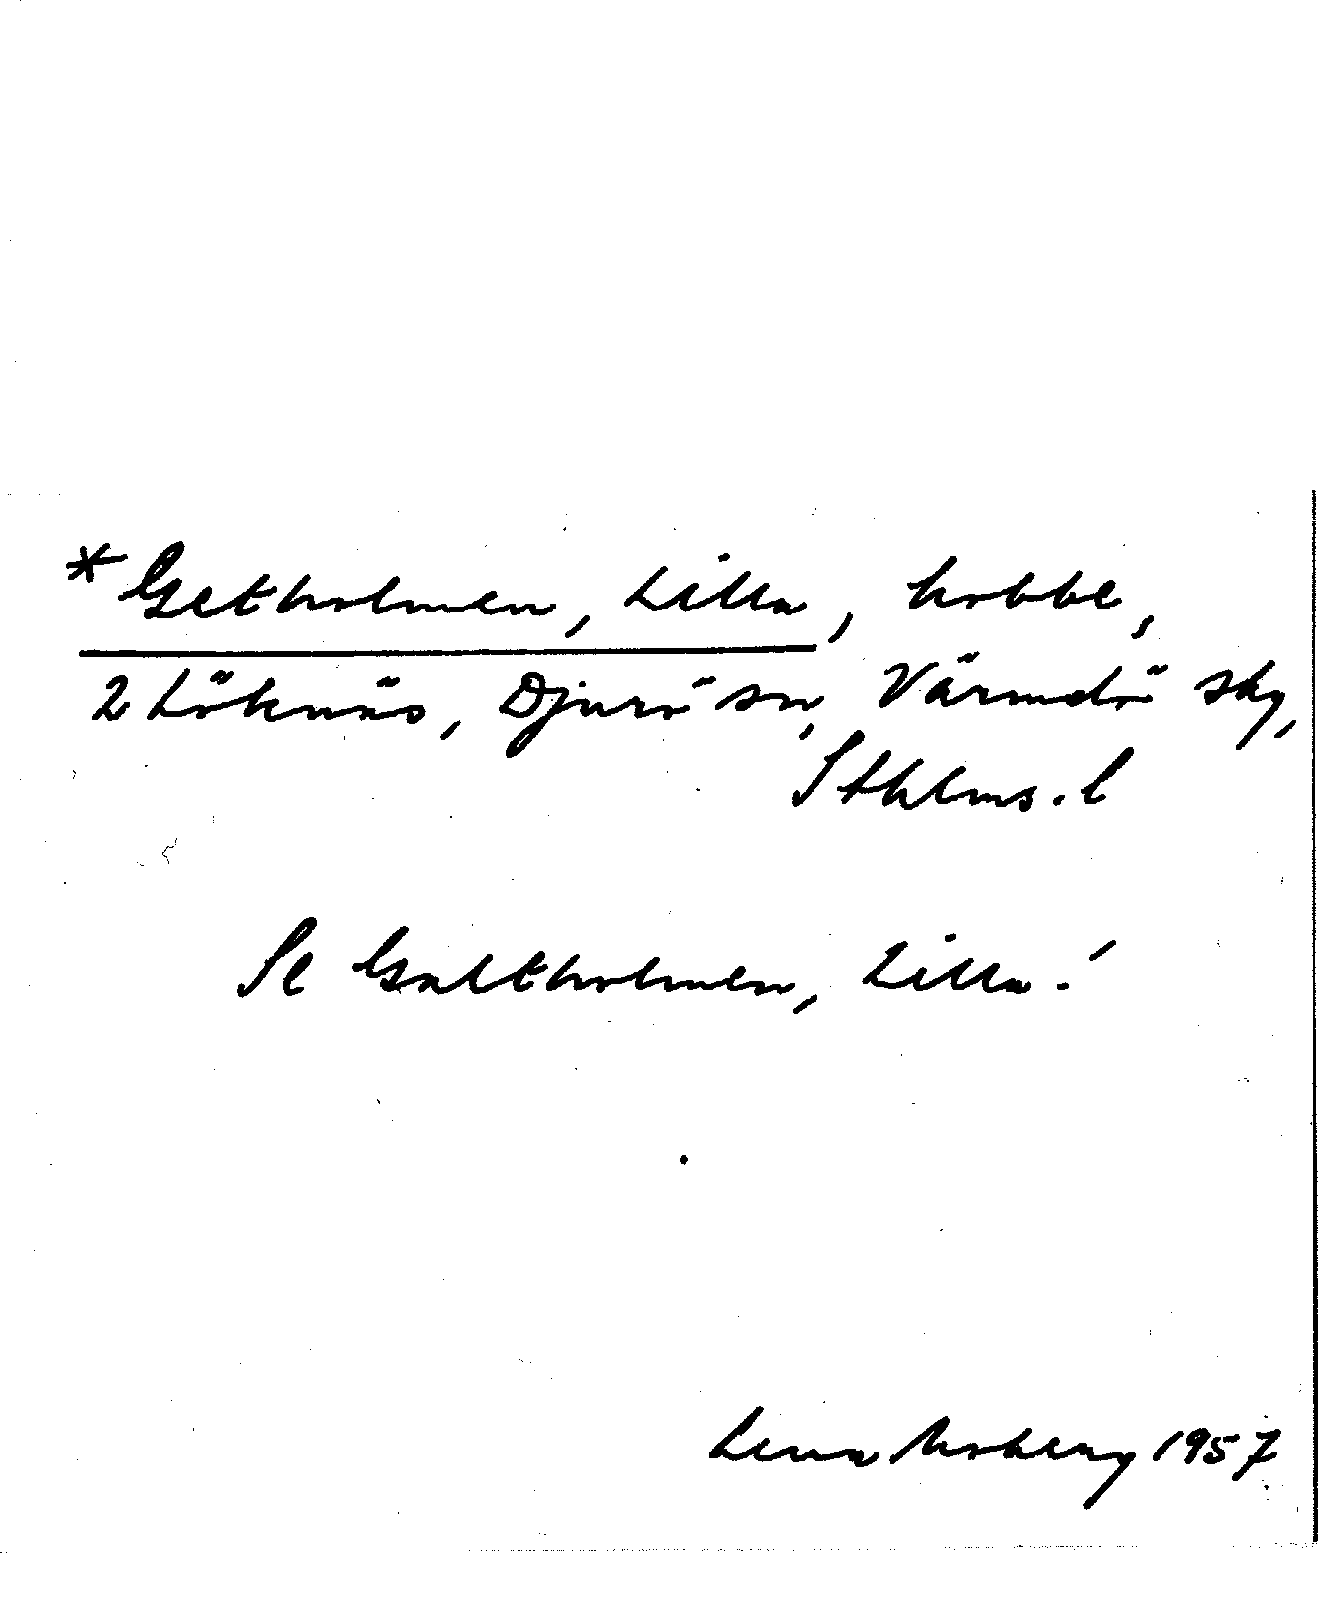 *Getholmen, Lilla, kobbe,
2 Löknäs, Djurö sn, Värmdö skg,
Sthlms. l
Se Galtholmen, Lilla!
Lena Moberg 1957